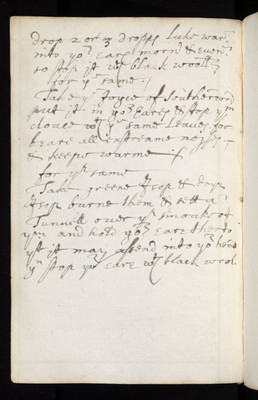 drop 2 or 3 dropps luke warm
into yor eare morn & even:
so stop it wth black wooll
for ye same
Take ye Joyce of Southernwood
put it in yor eares & stop ym
close wth ye same leaves for
beare all extreame noyses
& keepe warme
for ye same
Take greene & dry
burne them & sett a
Tunnill over ye smoake of
ym and hold yor eare therto
yt it may assend into yor head
yn stop yor eare wth black wool